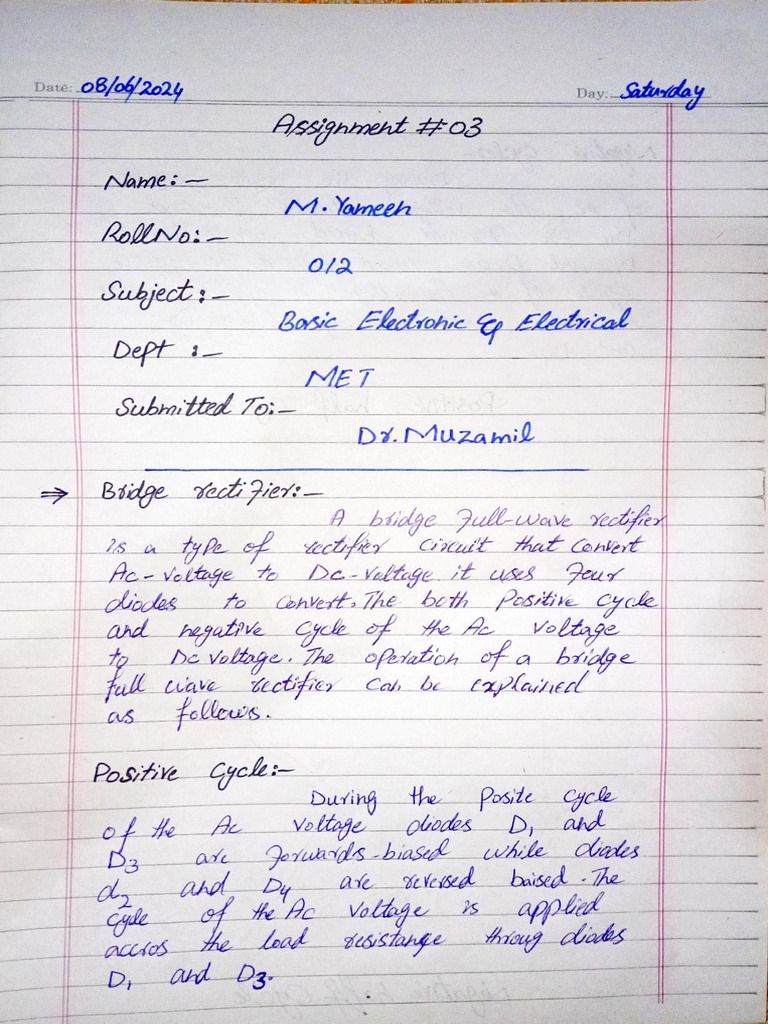 Date: 08/06/2024 Day: Saturday
Assignment # 03
Name:-
M. Yameen
Roll No:-
012
Subject:-
Basic Electronic & Electrical
Dept :-
MET
Submitted To:-
Dr. Muzamil
⇒ Bridge rectifier:-
A bridge Full-wave rectifier
is a type of rectifier circuit that convert
Ac-voltage to Dc-voltage it uses Four
diodes to convert. The both Positive cycle
and negative cycle of the Ac voltage
to Dc voltage. The operation of a bridge
full wave rectifier can be explained
as follows.
Positive Cycle:-
During the Posite cycle
of the Ac voltage diodes D1 and
D3 are Forwards-biased while diodes
d2 and D4 are reversed baised. The
cycle of the Ac voltage is applied
accros the load resistange throug diodes
D1 and D3.